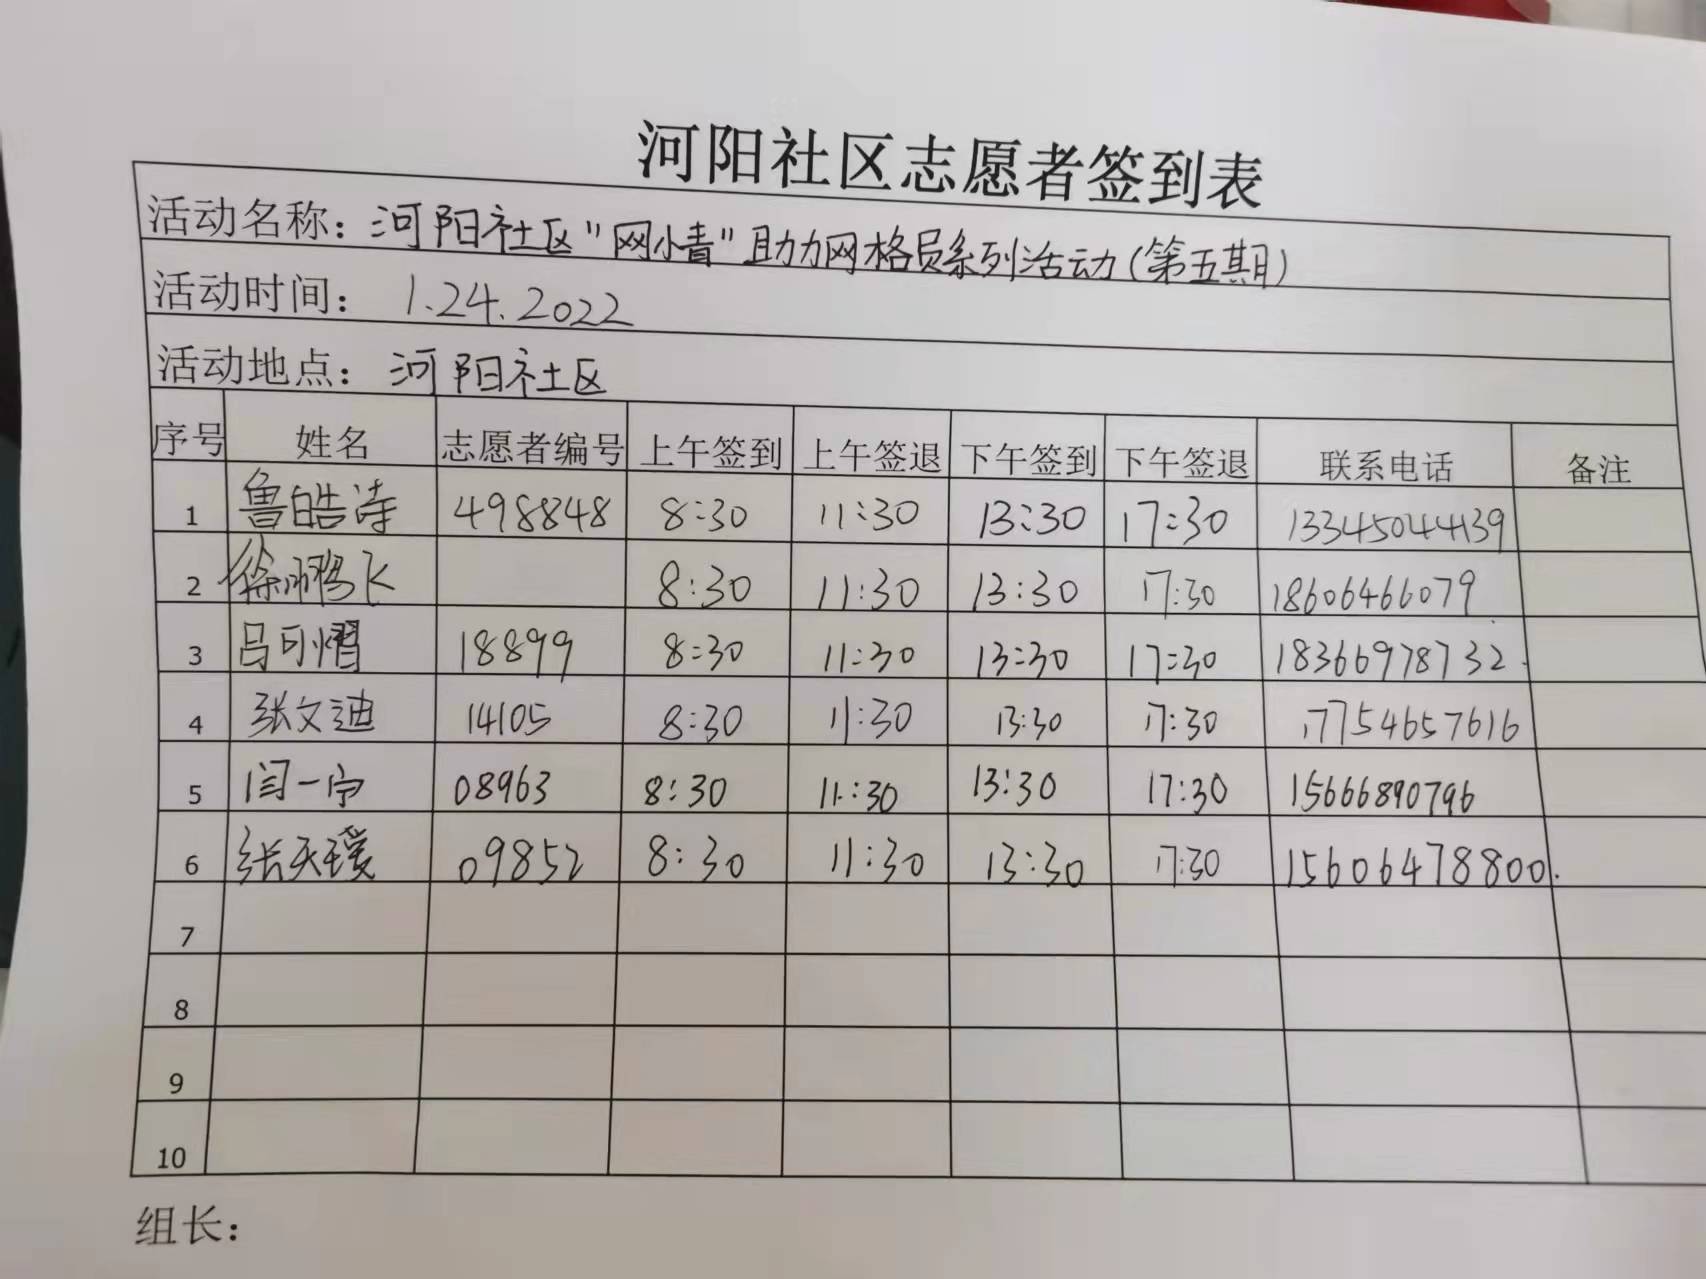 河阳社区志愿者签到表
活动名称：河阳社区"网小青"助力网格员系列活动(第五期)
活动时间：1.24.2022
活动地点：河阳社区
序号 姓名 志愿者编号 上午签到 上午签退 下午签到 下午签退 联系电话 备注
1 鲁皓诗 498848 8:30 11:30 13:30 17:30 13345044139
2 徐鹏飞 8:30 11:30 13:30 17:30 18606466079
3 吕可熠 18899 8:30 11:30 13:30 17:30 18366978732
4 张文迪 14105 8:30 11:30 13:30 17:30 17754657616
5 闫一宁 08963 8:30 11:30 13:30 17:30 15666890796
6 张天瑷 09852 8:30 11:30 13:30 17:30 15606478800
7
8
9
10
组长：